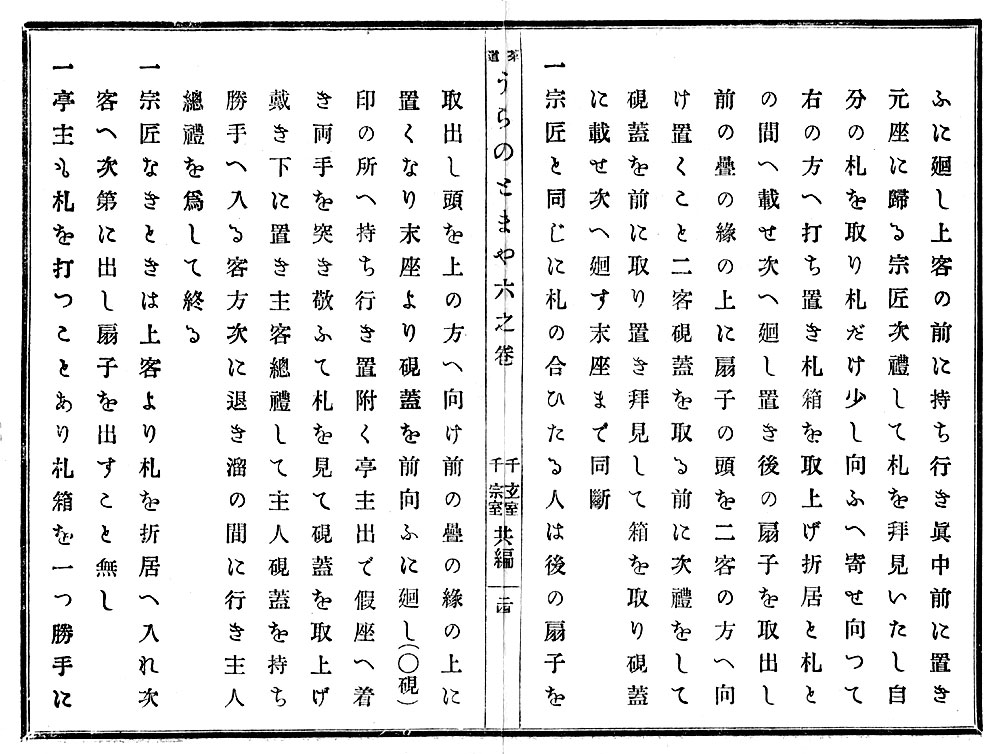 ふに廻し上客の前に持ち行き眞中前に置き
元座に歸る宗匠次禮して札を拜見いたし自
分の札を取り札だけ少し向ふへ寄せ向つて
右の方へ打ち置き札箱を取上げ折居と札と
の間へ載せ次へ廻し置き後の扇子を取出し
前の疊の緣の上に扇子の頭を二客の方へ向
け置くこと二客硯蓋を取る前に次禮をして
硯蓋を前に取り置き拜見して箱を取り硯蓋
に載せ次へ廻す末座まで同斷
一宗匠と同じに札の合ひたる人は後の扇子を
茶道うらのとまや六之卷
千玄室
千宗室
共編
取出し頭を上の方へ向け前の疊の緣の上に
置くなり末座より硯蓋を前向ふに廻し(〇硯)
印の所へ持ち行き置附く亭主出で假座へ着
き両手を突き敬ふて札を見て硯蓋を取上げ
戴き下に置き主客總禮して主人硯蓋を持ち
勝手へ入る客方次に退き溜の間に行き主人
總禮を爲して終る
一宗匠なきときは上客より札を折居へ入れ次
客へ次第に出し扇子を出すこと無し
一亭主も札を打つことあり札箱を一つ勝手に